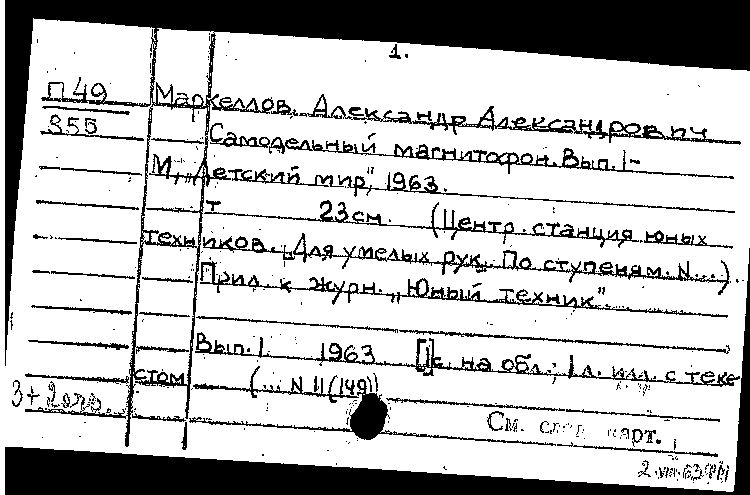 1.
П49 Маркеллов, Александр Александрович
355 Самодельный магнитофон. Вып. 1-
М, „Детский мир", 1963.
т 23см. (Центр. станция юных
техников. „Для умелых рук". По ступеням. N...).
Прил. к журн. „Юный техник".
Вып. 1 1963 [1]с. на обл.; 1 л. илл. с текс
стом (... N 11(149))
3+2
См. след карт.
2.VIII.63